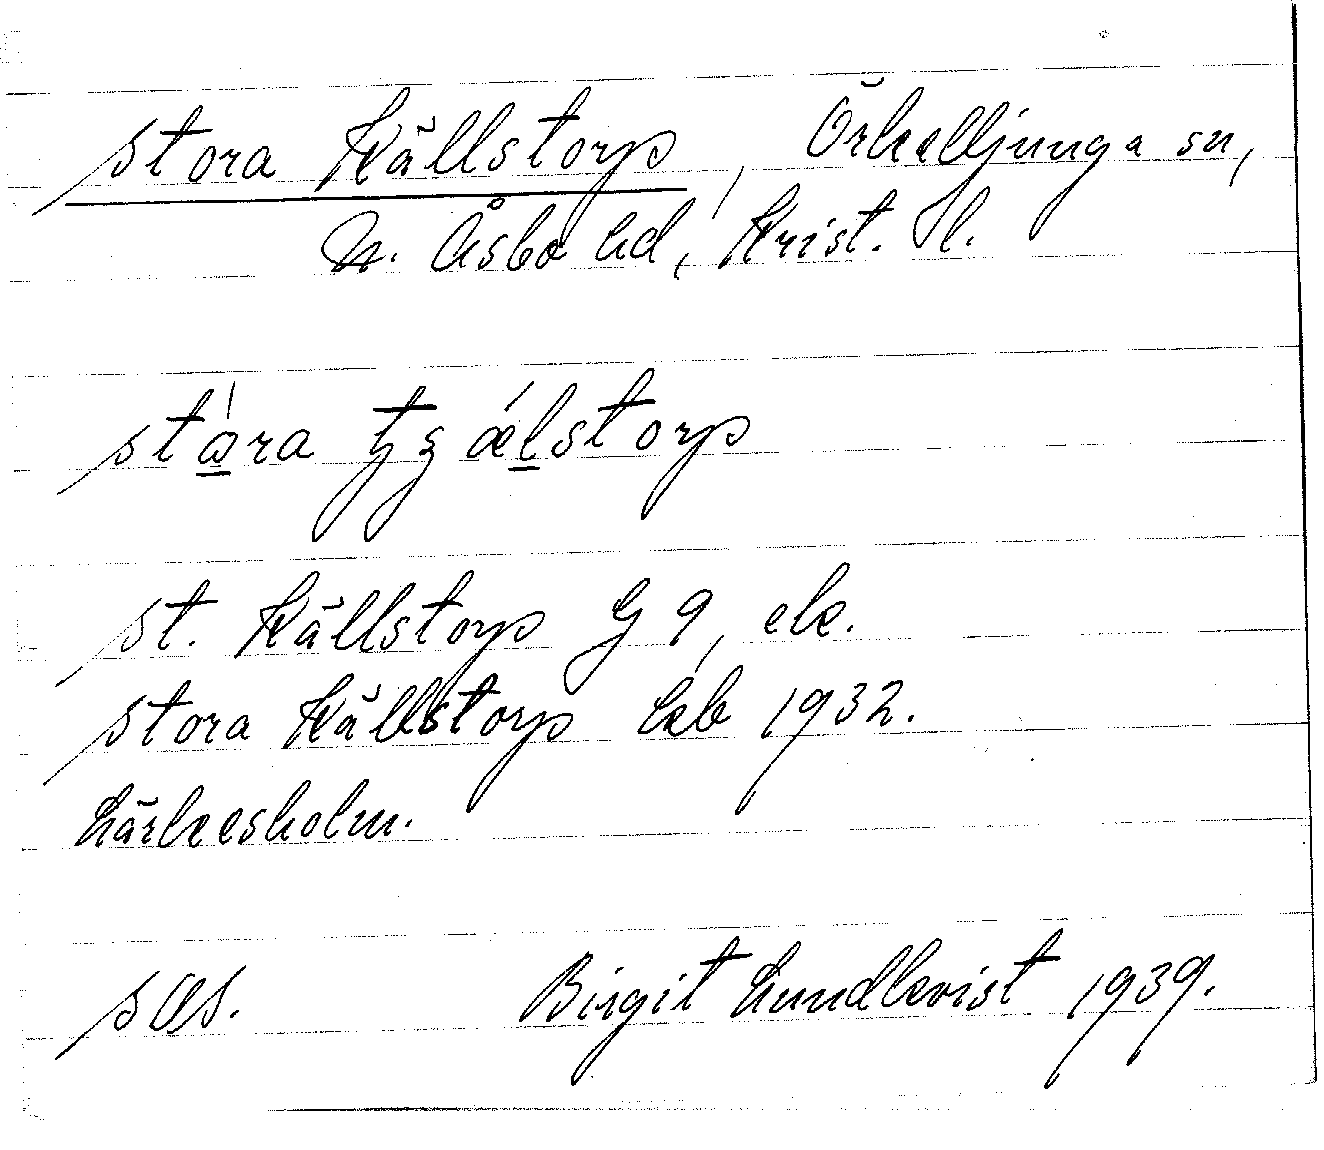 Stora Källstorp, Örkelljunga sn,
N. Åsbo hd, Krist. l.
stɷ́ra tʒǽlstorp
St. Källstorp G 9, ek.
Stora Källstorp kb 1932.
Lärkesholm.
Birgit Lundkvist 1939.